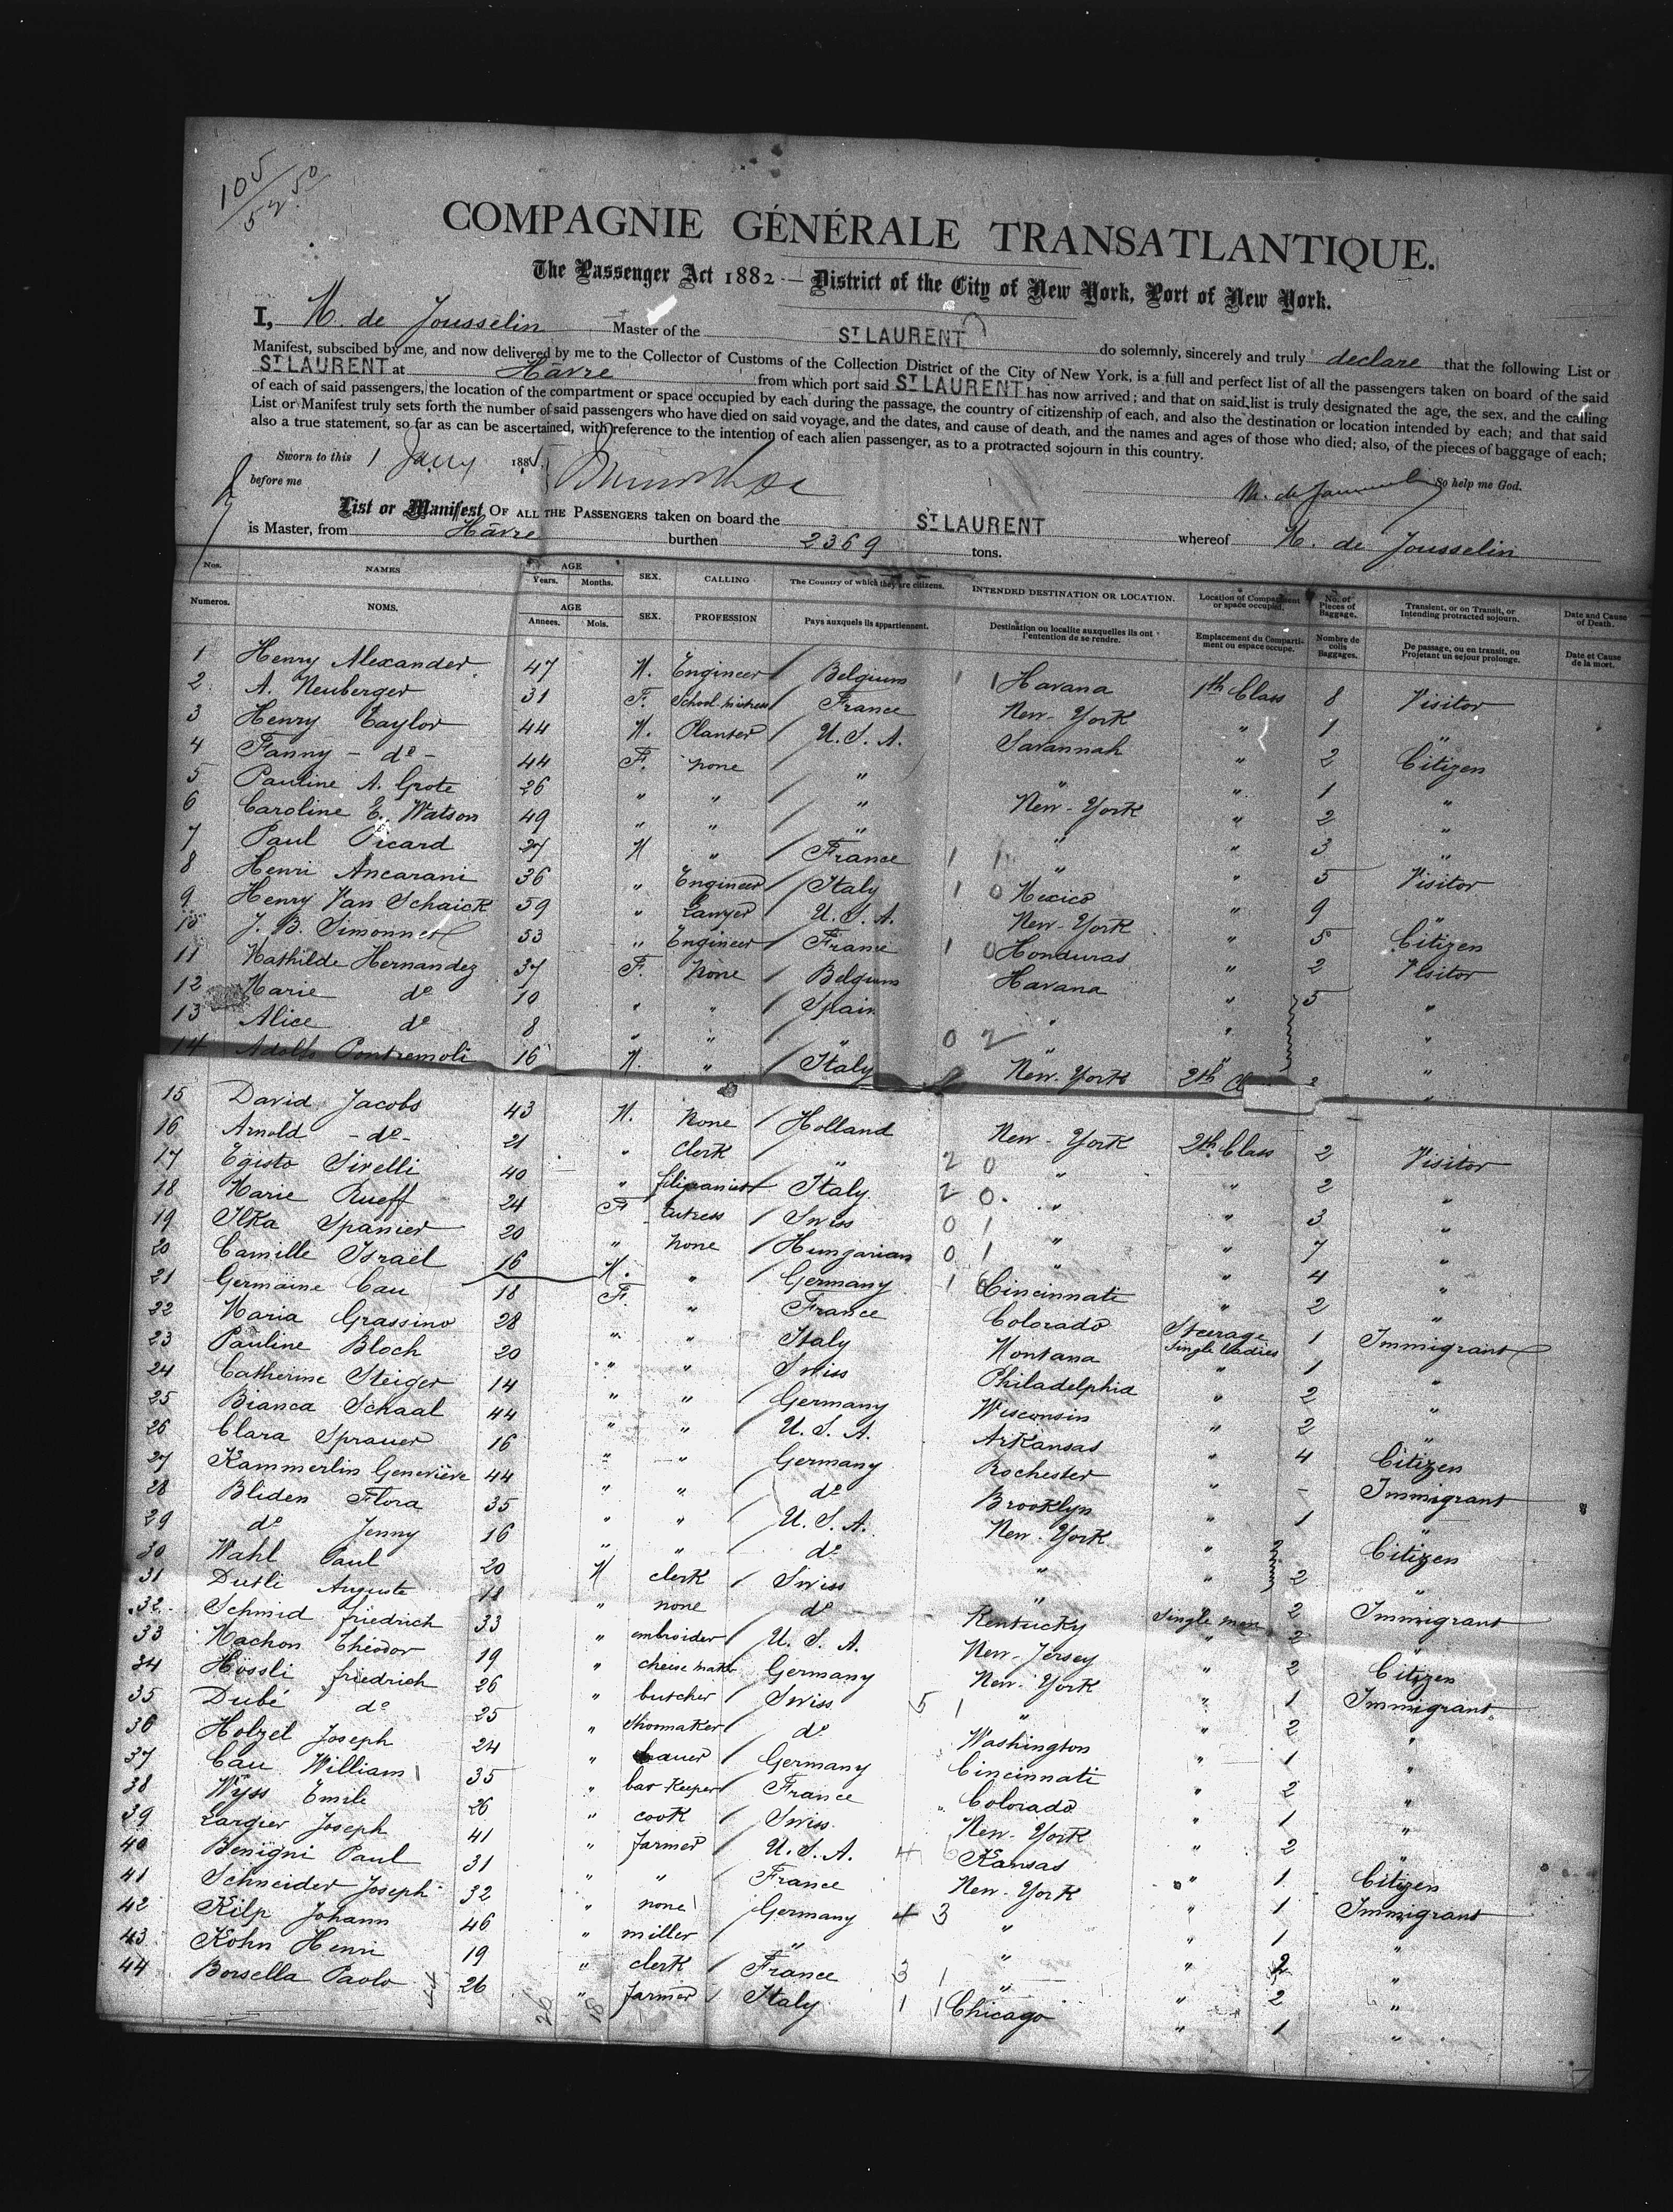 105
52.50
COMPAGNIE GÉNÉRALE TRANSATLANTIQUE.
The Passenger Act 1882 — District of the City of New York, Port of New York.
I, M. de Jousselin Master of the ST LAURENT do solemnly, sincerely and truly declare that the following List or
Manifest, subscibed by me, and now delivered by me to the Collector of Customs of the Collection District of the City of New York, is a full and perfect list of all the passengers taken on board of the said
ST LAURENT at Hâvre from which port said ST LAURENT has now arrived; and that on said list is truly designated the age, the sex, and the calling
of each of said passengers, the location of the compartment or space occupied by each during the passage, the country of citizenship of each, and also the destination or location intended by each; and that said
List or Manifest truly sets forth the number of said passengers who have died on said voyage, and the dates, and cause of death, and the names and ages of those who died; also, of the pieces of baggage of each;
also a true statement, so far as can be ascertained, with reference to the intention of each alien passenger, as to a protracted sojourn in this country.
Sworn to this 1 Jany 188
before me
So help me God.
List or Manifest OF ALL THE PASSENGERS taken on board the ST LAURENT whereof M. de Jousselin
is Master, from Hâvre burthen 2369 tons.
Nos. NAMES AGE Years. Months. SEX. CALLING The Country of which they are citizens. INTENDED DESTINATION OR LOCATION. Location of Compartment or space occupied. No. of Pieces of Baggage. Transient, or on Transit, or Intending protracted sojourn. Date and Cause of Death.
Numeros. NOMS. AGE Annees. Mois. SEX. PROFESSION Pays auxquels ils appartiennent. Destination ou localite auxquelles ils ont l'entention de se rendre. Emplacement du Compartiment ou espace occupe. Nombre de colis Baggages. De passage, ou en transit, ou Projetant un sejour prolonge. Date et Cause de la mort.
1 Henry Alexander 47 M. Engineer Belgium 1 1 Havana 1th Class 8 Visitor
2 A. Neuberger 31 F. School-mistress France New-York " 1 "
3 Henry Taylor 44 M. Planter U.S.A. Savannah " 2 Citizen
4 Fanny - do - 44 F. none " " " 1 "
5 Pauline A. Grote 26 " " " New-York " 2 "
6 Caroline E. Watson 49 " " " " " 3 "
7 Paul Picard 27 M " France 1 1 " " 5 Visitor
8 Henri Ancarani 36 " Engineer Italy 1 0 Mexico " 9 "
9 Henry Van Schaick 59 " Lawyer U.S.A. New-York " 5 Citizen
10 J. B. Simonnet 53 " Engineer France 1 0 Honduras " 2 Visitor
11 Mathilde Hernandez 37 F. None Belgium Havana " 5 "
12 Marie do 10 " " Spain " " "
13 Alice do 8 " " " 0 2 " " "
14 Adolfo Pontremoli 16 M. " Italy New-York 2th Cl "
15 David Jacobs 43 M. none Holland New-York 2th Class 2 Visitor
16 Arnold - do - 21 " clerk " 2 0 " " 2 "
17 Egisto Sivelli 40 " Italy 2 0 " " 3 "
18 Marie Rueff 24 F tutress Swiss 0 1 " " 7 "
19 Ilka Spanier 20 " none Hungarian 0 1 " " 4 "
20 Camille Israël 16 M. " Germany 1 0 Cincinnati " 2 "
21 Germaine Cau 18 F. " France Colorado Steerage Single ladies 1 Immigrant
22 Maria Grassino 28 " " Italy Montana " 1 "
23 Pauline Bloch 20 " " Swiss Philadelphia " 2 "
24 Catherine Steiger 14 " " Germany Wisconsin " 2 "
25 Bianca Schaal 44 " " U.S.A. Arkansas " 4 Citizen
26 Clara Sprauer 16 " " Germany Rochester " - Immigrant
27 Kammerlin Geneviève 44 " " do Brooklyn " 1 "
28 Bliden Flora 35 " " U.S.A. New-York " 2 Citizen
29 do Jenny 16 " " do " " "
30 Wahl Paul 20 M clerk Swiss " Single men 2 Immigrant
31 Dutli Auguste 18 " none do Kentucky " 2 "
32 Schmid friedrich 33 " embroider U.S.A. New-Jersey " 2 Citizen
33 Machon Théodor 19 " cheise maker Germany New-York " 1 Immigrant
34 Hössli friedrich 26 " butcher Swiss 5 1 " " 2 "
35 Dubé do 25 " shoomaker do Washington " 1 "
36 Holzel Joseph 24 " Germany Cincinnati " 2 "
37 Cau William 35 " bar Keeper France Colorado " 1 "
38 Wyss Emile 26 " cook Swiss New-York " 2 "
39 Largier Joseph 41 " farmer U.S.A. 4 Kansas " 1 Citizen
40 Benigni Paul 31 " " France New-York " 1 Immigrant
41 Schneider Joseph 32 " none Germany 4 3 " " 1 "
42 Kilp Johann 46 " miller " " " 2 "
43 Kohn Henri 19 " clerk France 3 1 " " 2 "
44 Borsella Paolo 26 " farmer Italy 1 1 Chicago " 1 "
44 26 18